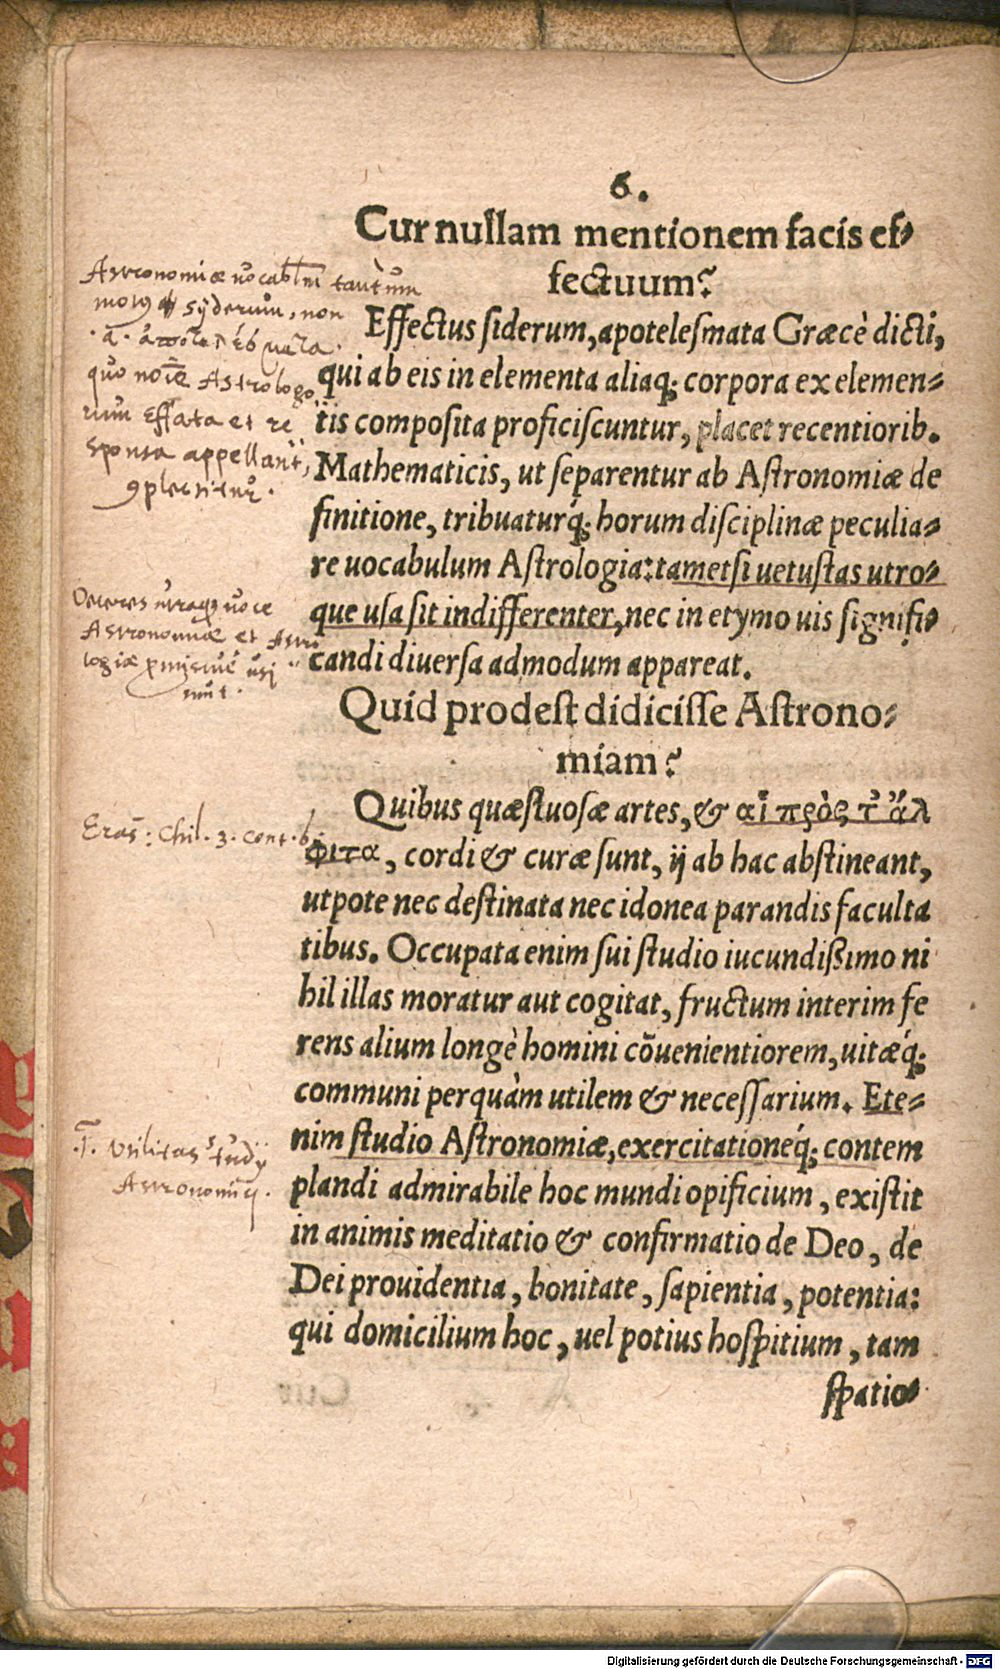 6.
Cur nullam mentionem facis ef-
fectuum?
Effectus siderum, apotelesmata Græcè dicti,
qui ab eis in elementa aliaq; corpora ex elemen-
tis composita proficiscuntur, placet recentiorib.
Mathematicis, ut separentur ab Astronomiæ de
finitione, tribuaturq́; horum disciplinæ peculia-
re uocabulum Astrologia: tametsi uetustas utro-
que usa sit indifferenter, nec in etymo uis signifi-
candi diuersa admodum appareat.
Quid prodest didicisse Astrono-
miam?
Quibus quæstuosæ artes, & αἱ πρὸς τ̓ ἄλ
φιτα, cordi & curæ sunt, ij ab hac abstineant,
utpote nec destinata nec idonea parandis faculta
tibus. Occupata enim sui studio iucundißimo ni
hil illas moratur aut cogitat, fructum interim fe
rens alium longè homini cōuenientiorem, uitæq́;
communi perquàm utilem & necessarium. Ete-
nim studio Astronomiæ, exercitationeq́; contem
plandi admirabile hoc mundi opificium, existit
in animis meditatio & confirmatio de Deo, de
Dei prouidentia, bonitate, sapientia, potentia:
qui domicilium hoc, uel potius hospitium, tam
spatio-
Astronomiæ
tantum
syderum, non
Astrologo
rum effata et re
sponsa appellant,
uoce
Astronomiæ et Astro
logiæ
sunt.
Eras: Chil. 3. cent. 6
.I. Vtilitas studij
Astronomici.
Digitalisierung gefördert durch die Deutsche Forschungsgemeinschaft - DFG